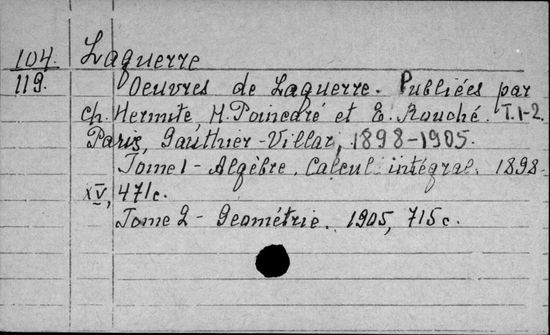 104. Laguerre
119. Oeuvres de Laguerre. Publiées par
Ch. Hermite, H. Poincaré et E. Rouché. T. 1-2.
Paris, Gauthier-Villar, 1898-1905.
Tome 1 - Algèbre. Calcul intégral. 1898.
XV, 471c.
Tome 2 - Géométrie. 1905, 715c.